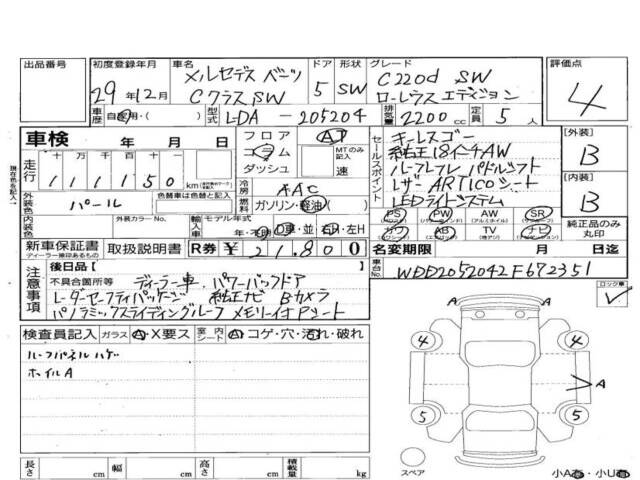 出品番号
初度登録年月
29年12月
車名 メルセデスベーンツ
Cクラス SW
ドア 5
形状 SW
グレード C220d SW
ローレウスエディション
評価点 4
車歴 自家用・( )
型式 LDA-205204
排気量 2200cc
定員 5人
車検 年 月 日
フロア コラム ダッシュ
AT
MTのみ記入 速
走行 十万 千 百 十
111150km
冷房 AAC
燃料 ガソリン・軽油・( )
外装色 パール
色替車は色替と記入
内装色
外装カラーNo.
輸入車 モデル年式 年・不明
車・並 右H・左H
新車保証書
ディーラー車のみあるもの
取扱説明書
R券 ¥21,800
セールスポイント
キーレスゴー
純正18インチAW
ハーフレザレ パドルシフト
レザー ARTICOシート
LEDライトシステム
PS PW AW SR
カワ AB TV ナビ
純正品のみ丸印
[外装] B
[内装] B
名変期限 月 日迄
車台No. WDD2052042F672351
注意事項
後日品【 】
不具合箇所等 ディーラー車、パワーバックドア
レーダーセーフティパッケージ 純正ナビ Bカメラ
パノラミックスライディングルーフ メモリー付Pシート
ロック車
検査員記入 ガラス A・X要ス 室内シート A・コゲ・穴・汚れ・破れ
ルーフパネルハゲ
ホイルA
A A
4 4
A
5 5
スペア
長さ cm 幅 cm 高さ cm 積載量 kg
小A有・小U有